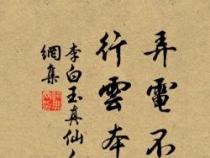 弄電不
行雲本
李白玉真仙人
網集